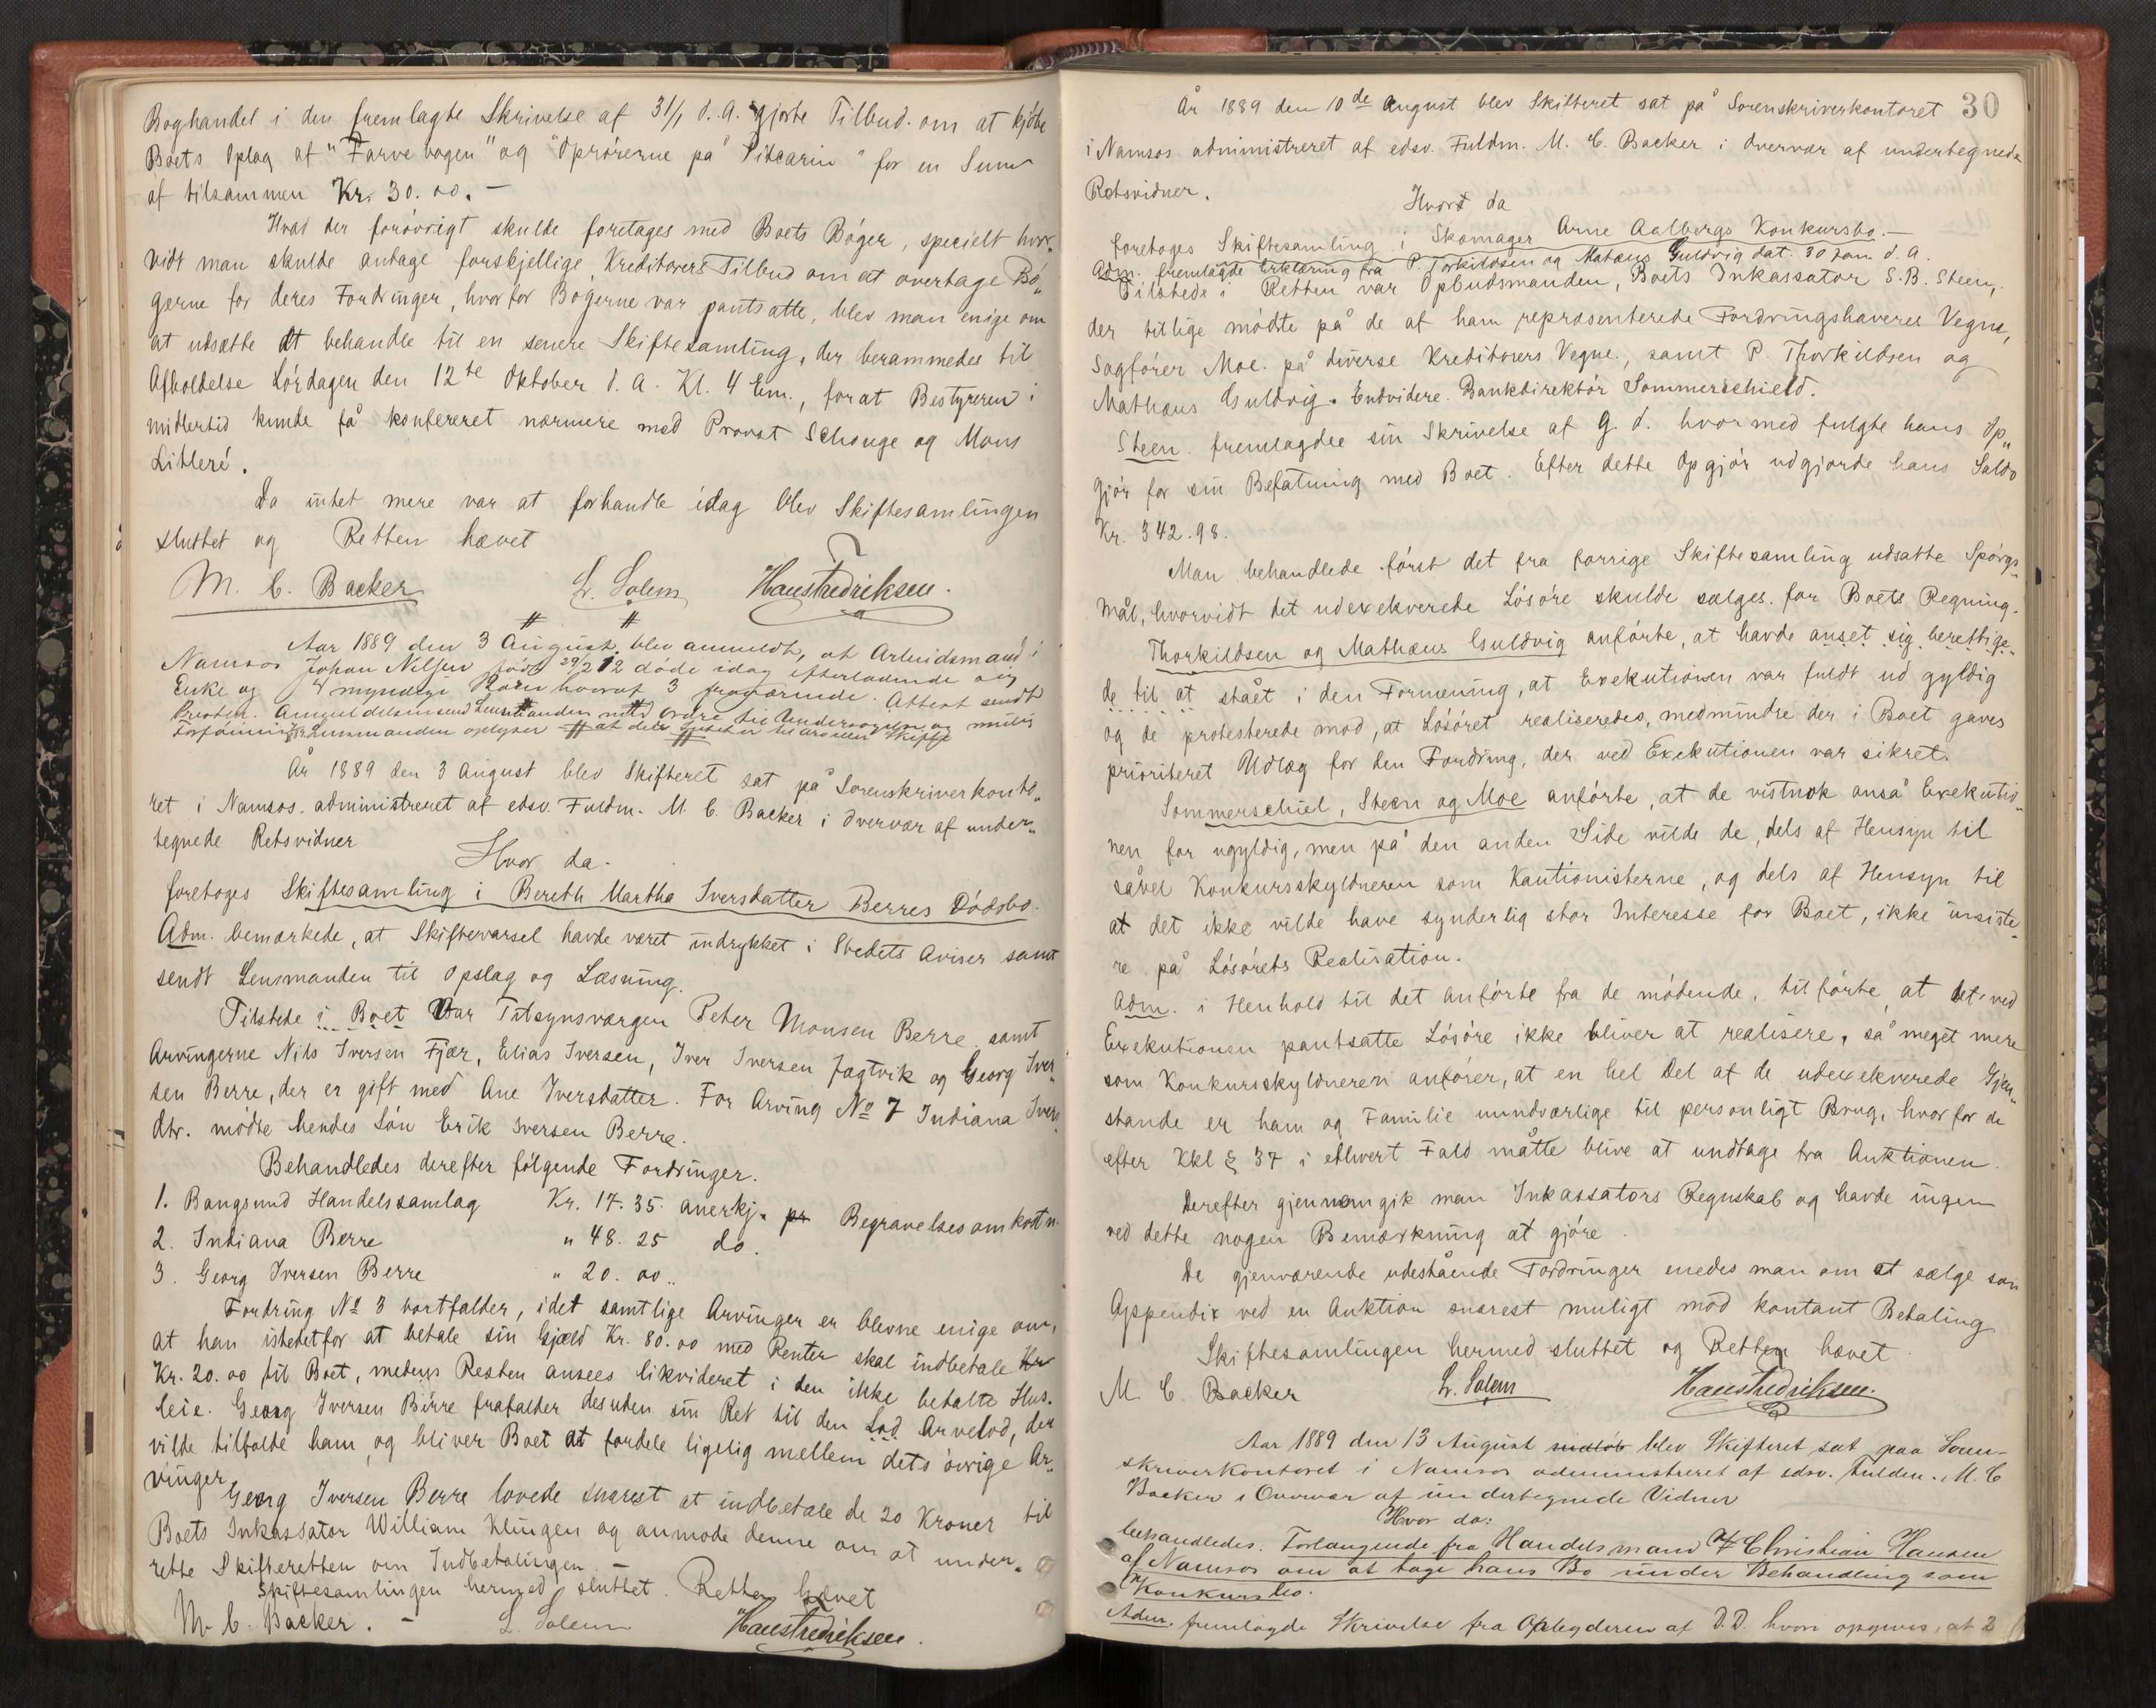 Boghandel i den fremlagte Skrivelse af 31/1 d. A. gjorte Tilbud. om at kjöbe
Boets Oplag af "Farvebogen" og "Oprörerne på Pitcarin" for en Sum
af tilsammen Kr. 30.00. —
Hvad der forövrigt skulde foretages med Boets Böger, specielt hvor„
vidt man skulde antage forskjellige Kreditorers Tilbud om at overtage Bö„
gerne for deres Fordringer, hvorfor Bögerne var pantsatte, blev man enige om
at udsætte at behandle til en senere Skiftesamling, der berammedes til
Afholdelse Lördagen den 12te Oktober d. A. Kl. 4 Em., forat Bestyreren i
midlertid kunde få konfereret nærmere med Provst Schonge og Mons
Litleré.
Da intet mere var at forhandle idag blev Skiftesamlingen
sluttet og Retten hævet
M. C. Backer L. Solem Hans Fredriksen.
Aar 1889 den 3 August blev anmeldt, at Arbeidsmand i
Namsos Johan Nilsen født 29/2 12 döde idag efterladende sig
Enke og 4 myndige Börn hvoraf 3 fraværende. Attest sendt
Presten. Anmeldelsen send Lensmanden med Ordre til Undersögelse og mulig
Forsegling. Lensmanden oplyser at der Intet er til arveligt Skifte
År 1889 den 3 August blev Skifteret sat på Sorenskriverkonto„
ret i Namsos. administreret af edsv. Fuldm. M. C. Backer i Overvær af under„
tegnede Retsvidner
Hvor da.
foretoges Skiftesamling i Bereth Martha Iversdatter Berres Dödsbo.
Adm. bemærkede, at Skiftevarsel havde været indrykket i Stedets Aviser samt
sendt Lensmanden til Opslag og Læsning.
Tilstede i Boet var Tilsynsværgen Peter Monsen Berre samt
Arvingerne Nils Iversen Fjær, Elias Iversen, Iver Iversen Jægtvik og Georg Iver„
sen Berre, der er gift med Ane Iversdatter. For Arving No 7 Indiana Ivers
dtr. mödte hendes Sön Erik Iversen Berre.
Behandledes derefter fölgende Fordringer.
1. Bangsund Handelssamlag Kr. 17.35. anerkj. pr Begravelsesomkostn.
2. Indiana Berre „ 48.25 do.
3. Georg Iversen Berre „ 20.00„
Fordring No 3 bortfalder, idet samtlige Arvinger er blevne enige om,
at han istedetfor at betale sin Gjæld Kr. 80.00 med Renter skal indbetale Kr
Kr. 20.00 til Boet, medens Resten ansees likvideret i den ikke betalte Hus„
leie. Georg Iversen Berre frafalder desuden sin Ret til den Lod Arvelod, der
vilde tilfalde ham og bliver Boet at fordele ligelig mellem dets övrige Ar„
vinger
Georg Iversen Berre lovede snarest at indbetale de 20 Kroner til
Boets Inkassator William Klingen og anmode denne om at under„
rette Skifteretten om Indbetalingen. —
Skiftesamlingen hermed sluttet. Retten hævet
M. C. Backer. — L. Solem Hans Fredriksen.
30
År 1889 den 10de August blev Skifteret sat på Sorenskriverkontoret
i Namsos administreret af edsv. Fuldm. M. C. Backer i Overvær af undertegnede
Retsvidner.
Hvor da
foretoges Skiftesamling i Skomager Arne Aalbergs Konkursbo. —
Adm. fremlagde Erklæring fra P. Torkildsen og Matæus Guldvig dat. 30 Jan d. A.
Tilstede i Retten var Opbudsmanden, Boets Inkassator S. B. Steen,
der tillige mödte på de af ham repræsenterede Fordringshaveres Vegne,
Sagförer Moe. på diverse Kreditorers Vegne, samt P. Thorkildsen og
Mathæus Guldvig. Endvidere. Bankdirektör Sommerschield.
Steen fremlagdee sin Skrivelse af G. d. hvormed fulgte hans Op„
gjör for sin Befatning med Boet. Efter dette Opgjör udgjorde hans Saldo
Kr. 342.98.
Man behandlede först det fra forrige Skiftesamling udsatte Spörgs„
mål, hvorvidt det udexekverede Lösöre skulde sælges for Boets Regning.
Thorkildsen og Mathæus Guldvig anförte, at havde anset sig berettige„
de til at stået i den Formening, at Exekutionen var fuldt ud gyldig
og de protesterede mod, at Lösöret realiseredes, medmindre der i Boet gaves
prioriteret Udlæg for den Fordring, der ved Exekutionen var sikret.
Sommerschiel, Steen og Moe anförte, at de vistnok anså Exekutio„
nen for ugyldig, men på den anden Side vilde de, dels af Hensyn til
såvel Konkursskyldneren som Kautionisterne, og dels af Hensyn til
at det ikke vilde have synderlig stor Interesse for Boet, ikke insiste„
re på Lösörets Realisation.
Adm. i Henhold til det anförte fra de mödende, tilförte, at det ved
Exekutionen pantsatte Lösöre ikke bliver at realisere, så meget mere
som Konkursskyldneren anförer, at en hel Del af de udexekverede Gjen„
stande er ham og Familie uundværlige til personligt Brug, hvorfor de
efter Kkl § 37 i ethvert Fald måtte blive at undtage fra Auktionen.
Derefter gjennemgik man Inkassators Regnskab og havde ingen
ved dette nogen Bemærkning at gjöre.
De gjenværende udestående Fordringer enedes man om at sælge som
Appendix ved en Auktion snarest muligt mod kontant Betaling
Skiftesamlingen hermed sluttet og Retten hævet.
M. C. Backer L. Solem Hans Fredriksen.
Aar 1889 den 13 August blev Skifteret sat paa Soren-
skriverkontoret i Namsos administreret af edsv. Fuldm. M. C
Backer i Overvær af undertegnede Vidner
Hvor da:
behandledes: Forlangende fra Handelsmand Christian Hansen
af Namsos om at tage hans Bo under Behandling som
Konkursbo.
Adm. fremlagde Skrivelse fra Opbyderen af D. D. hvori opgives, at 2